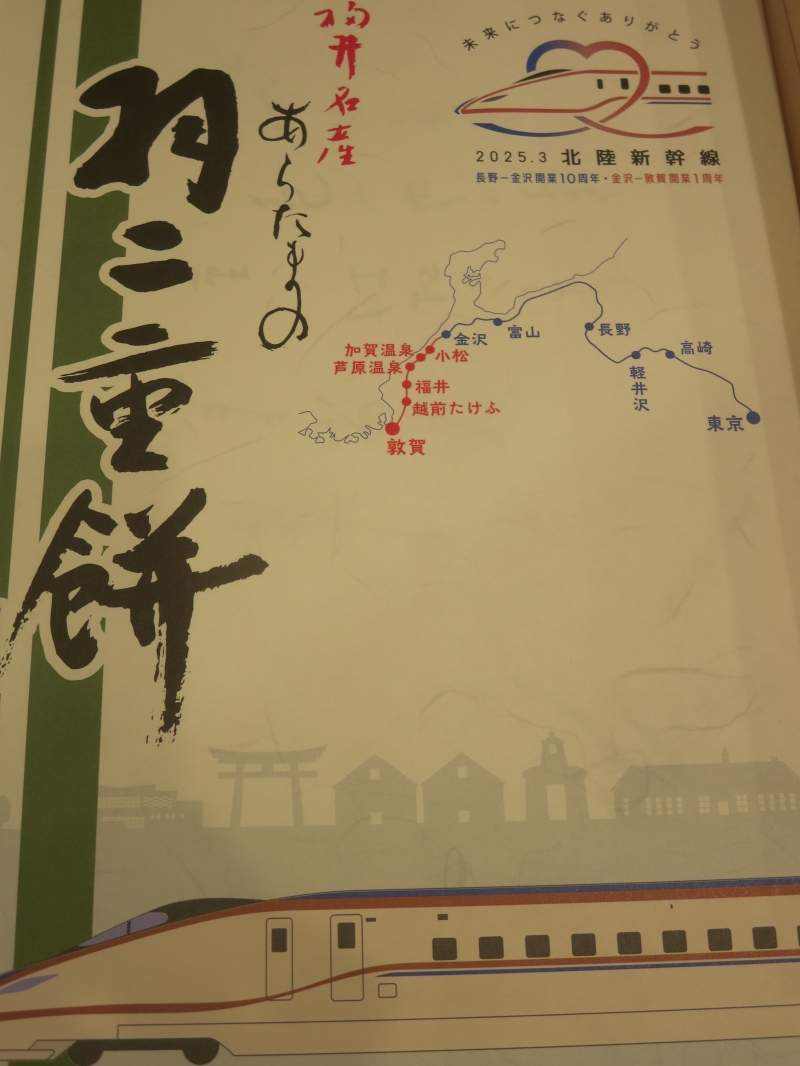 福井名産
あらたまの
羽二重餅
未来につなぐありがとう
2025.3 北陸新幹線
長野-金沢開業10周年・金沢-敦賀開業1周年
金沢
富山
長野
高崎
軽井沢
東京
加賀温泉
小松
芦原温泉
福井
越前たけふ
敦賀